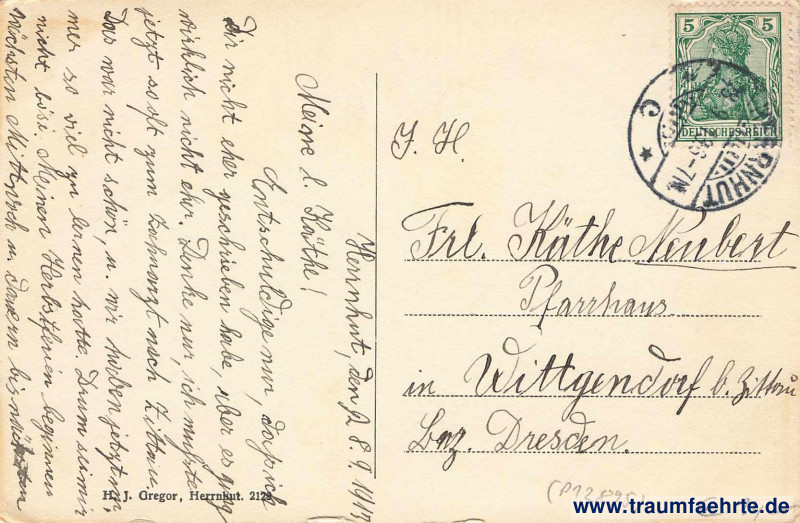 Herrnhut, den 28.9.191
Meine l. Käthe!
Entschuldige nur, daß ich
Dir nicht eher geschrieben habe, aber es ging
wirklich nicht eher. Denke nur, ich mußte
jetzt so oft zum Zahnarzt nach Zittau.
Das war nicht schön, u. wir haben jetzt im-
mer so viel zu lernen hatte. Drum sei mir
nicht böse. Meinen Herbstferien beginnen
nächsten Mittwoch u. dauern bis nächsten
H. J. Gregor, Herrnhut. 2129
5 5
DEUTSCHES REICH
HERRNHUT
J. H.
Frl. Käthe Neubert
Pfarrhaus
in Wittgendorf b. Zittau
Bez. Dresden.
www.traumfaehrte.de